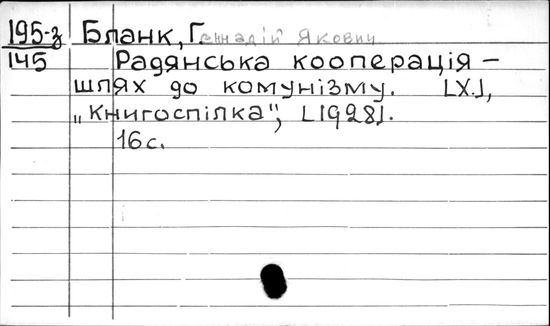 195-з Бланк, Геннадій Якович
145 Радянська кооперація –
шлях до комунізму. [Х.],
„Книгоспілка", [1928].
16 с.